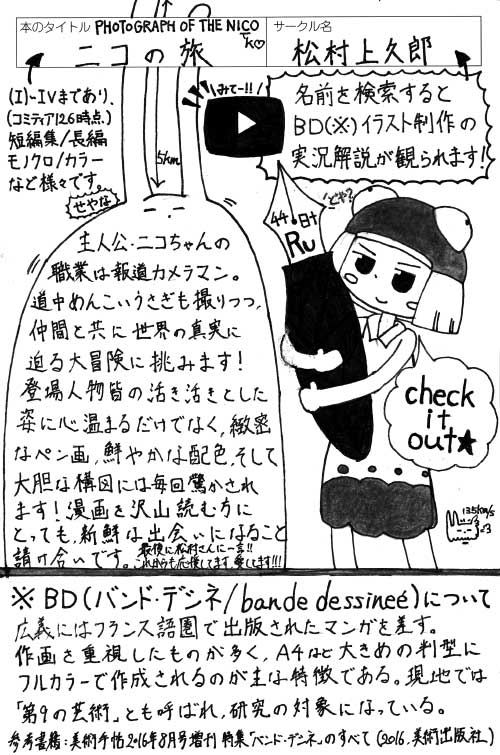 本のタイトル PHOTOGRAPH OF THE NICO
ニコの旅
サークル名
松村上久郎
(I)~IVまであり、
(コミティア126時点.)
短編集/長編
モノクロ/カラー
など様々です。
せやな
5km
みてー!!
名前を検索すると
BD(※)イラスト制作の
実況解説が観られます!
どや?
Ru
主人公・ニコちゃんの
職業は報道カメラマン。
道中めんこいうさぎも撮りつつ、
仲間と共に世界の真実に
迫る大冒険に挑みます!
登場人物皆の活き活きとした
姿に心温まるだけでなく、緻密
なペン画、鮮やかな配色、そして
大胆な構図には毎回驚かされ
ます!漫画を沢山読む方に
とっても、新鮮な出会いになること
請け合いです。
最後に松村さんに一言!!
これからも応援してます、愛してます!!!
check
it
out★
※BD(バンド・デシネ/bande dessineé)について
広義にはフランス語圏で出版されたマンガを差す。
作画を重視したものが多く、A4など大きめの判型に
フルカラーで作成されるのが主な特徴である。現地では
「第9の芸術」とも呼ばれ、研究の対象になっている。
参考書籍:美術手帖2016年8月号増刊 特集「バンド・デシネ」のすべて(2016.美術出版社)